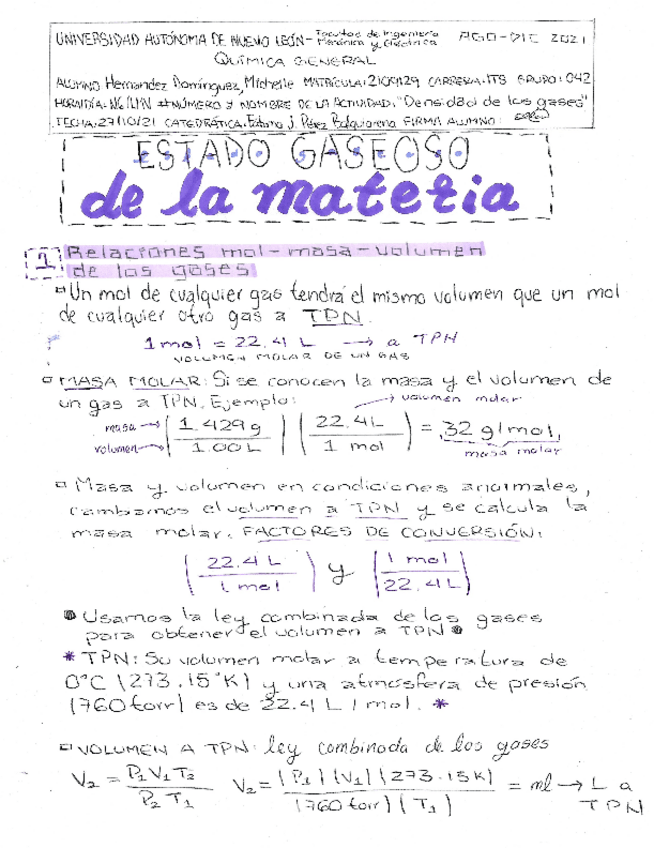 UNIVERSIDAD AUTÓNOMA DE NUEVO LEÓN - Facultad de Ingeniería Mecánica y Eléctrica AGO-DIC 2021
QUÍMICA GENERAL
ALUMNO Hernandez Domínguez, Michelle MATRÍCULA: CARRERA: ITS GRUPO: 042
HORA/DÍA: #NÚMERO Y NOMBRE DE LA ACTIVIDAD: "Densidad de los gases"
FECHA: 27/10/21 CATEDRÁTICA: J. Pérez FIRMA ALUMNO:
ESTADO GASEOSO
de la materia
1 Relaciones mol-masa-volumen
de los gases
Un mol de cualquier gas tendrá el mismo volumen que un mol
de cualquier otro gas a TPN.
1 mol = 22.4 L → a TPN
VOLUMEN MOLAR DE UN GAS
MASA MOLAR: Si se conocen la masa y el volumen de
un gas a TPN. Ejemplo: → volumen molar
masa → (1.429 g / volumen → 1.00 L) (22.4 L / 1 mol) = 32 g/mol,
masa molar
Masa y volumen en condiciones anormales,
cambiamos el volumen a TPN y se calcula la
masa molar. FACTORES DE CONVERSIÓN:
(22.4 L / 1 mol) y (1 mol / 22.4 L)
Usamos la ley combinada de los gases
para obtener el volumen a TPN
* TPN: Su volumen molar a temperatura de
0°C (273.15°K) y una atmosfera de presión
(760 torr) es de 22.4 L / mol. *
VOLUMEN A TPN: ley combinada de los gases
V₂ = P₁V₁T₂ / P₂T₁ V₂ = (P₁)(V₁)(273.15K) / (760 torr)(T₁) = ml → L a
TPN